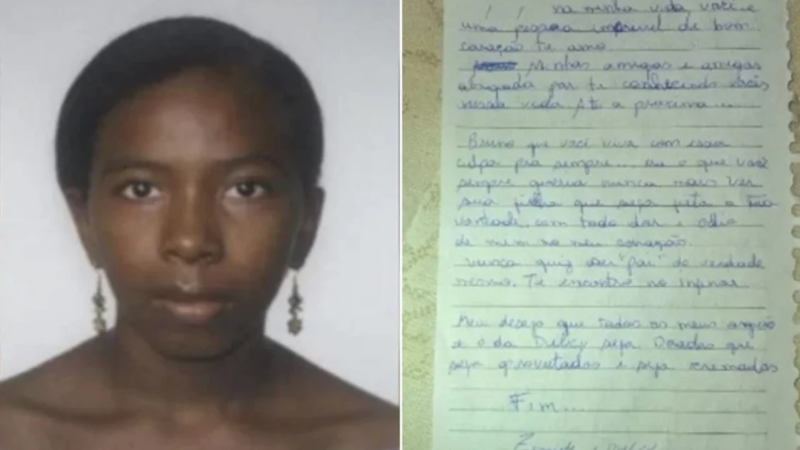 na minha vida você e
uma pessoa de bom
coração te amo
Minhas amigas e amigos
obrigada por te
nessa vida Até a proxima...
Bruno que você viva com essa
culpa pra sempre... era o que você
sempre queria nunca mais ver
sua filha que seja feita a tua
vontade com toda dor e odio
de mim no meu coração.
Nunca quiz ser "pai" de verdade
mesmo. Te encontro no inferno
Meu desejo que todos os meus orgãos
e o da seja Doados que
seja aproveitados e seja cremados
Fim...